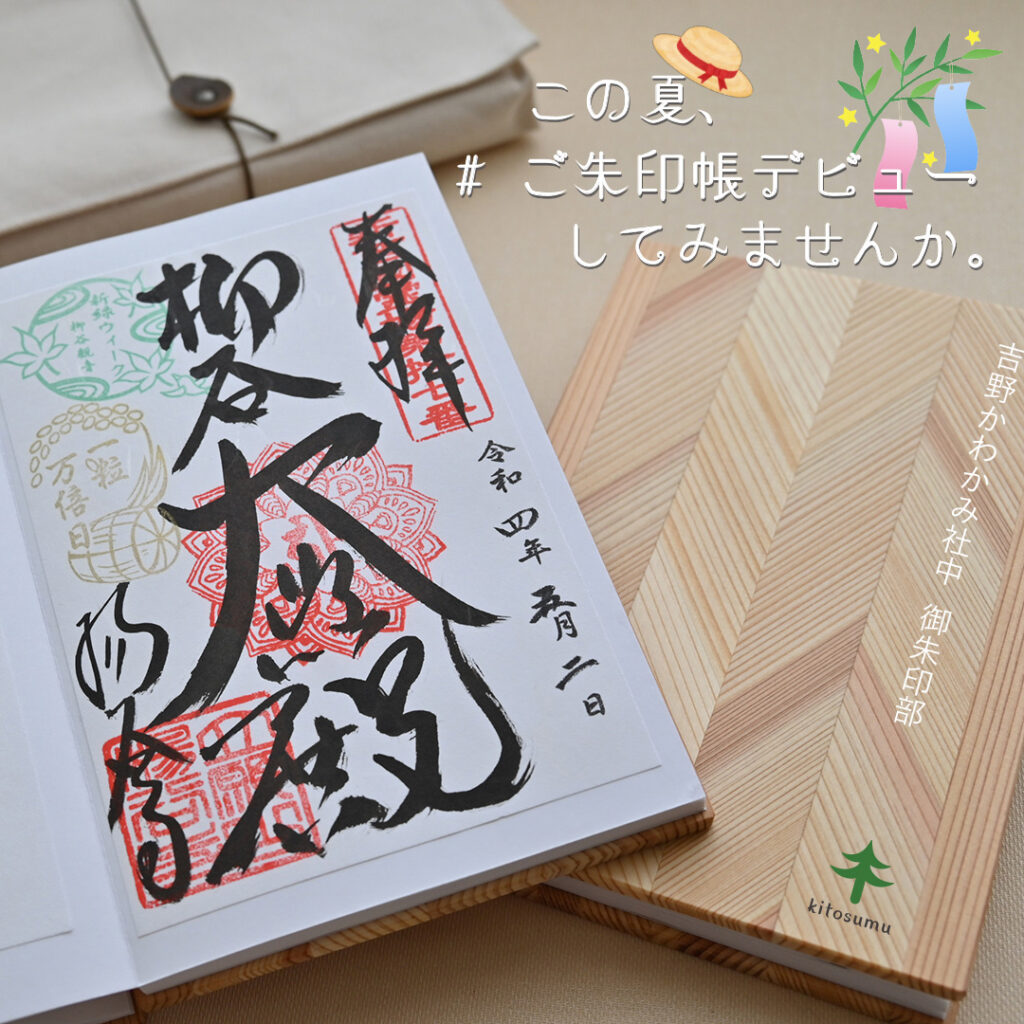 この夏、
# ご朱印帳デビュー
してみませんか。
奉拝
柳谷
大悲殿
楊谷寺
令和四年五月二日
新緑ウィーク
柳谷観音
一粒
万倍
日
吉野かわかみ社中 御朱印部
kitosumu